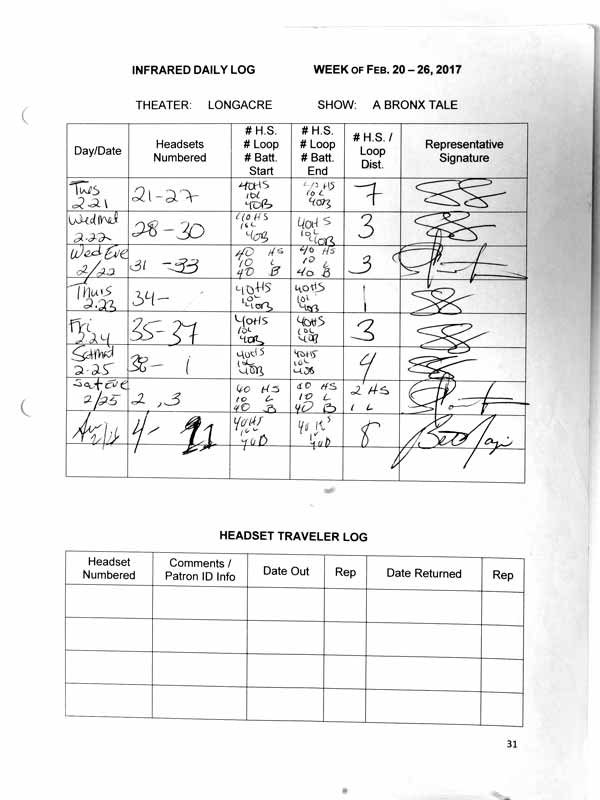 INFRARED DAILY LOG WEEK OF FEB. 20 – 26, 2017
THEATER: LONGACRE SHOW: A BRONX TALE
Day/Date Headsets Numbered # H.S. # Loop # Batt. Start # H.S. # Loop # Batt. End # H.S. / Loop Dist. Representative Signature
Tues 2.21 21-27 40HS 10L 40B 40HS 10L 40B 7
Wedmat 2.22 28-30 40HS 10L 40B 40HS 10L 40B 3
Wed Eve 2/22 31-33 40 HS 10 L 40 B 40 HS 10 L 40 B 3
Thurs 2.23 34- 40HS 10L 40B 40HS 10L 40B 1
Fri 2.24 35-37 40HS 10L 40B 40HS 10L 40B 3
Satmat 2.25 38-1 40HS 10L 40B 40HS 10L 40B 4
Sat Eve 2/25 2,3 40 HS 10 L 40 B 40 HS 10 L 40 B 2 HS 1 L
Sun 2/26 4-11 40HS 10L 40B 40HS 10L 40B 8
HEADSET TRAVELER LOG
Headset Numbered Comments / Patron ID Info Date Out Rep Date Returned Rep
31